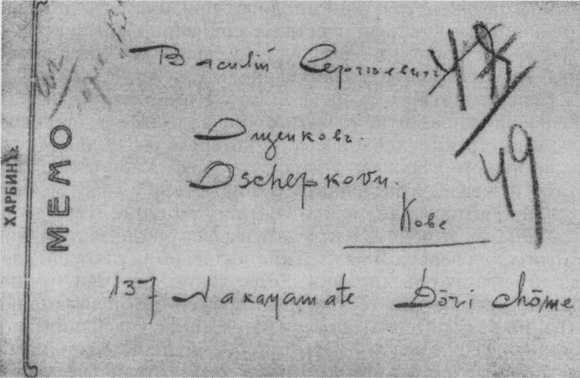 ХАРБИНЪ
МЕМО
Василій Сергѣевичъ
Ощепковъ.
49
Oschepkovu.
Кобе
137 Nakayamate Dōri chōme